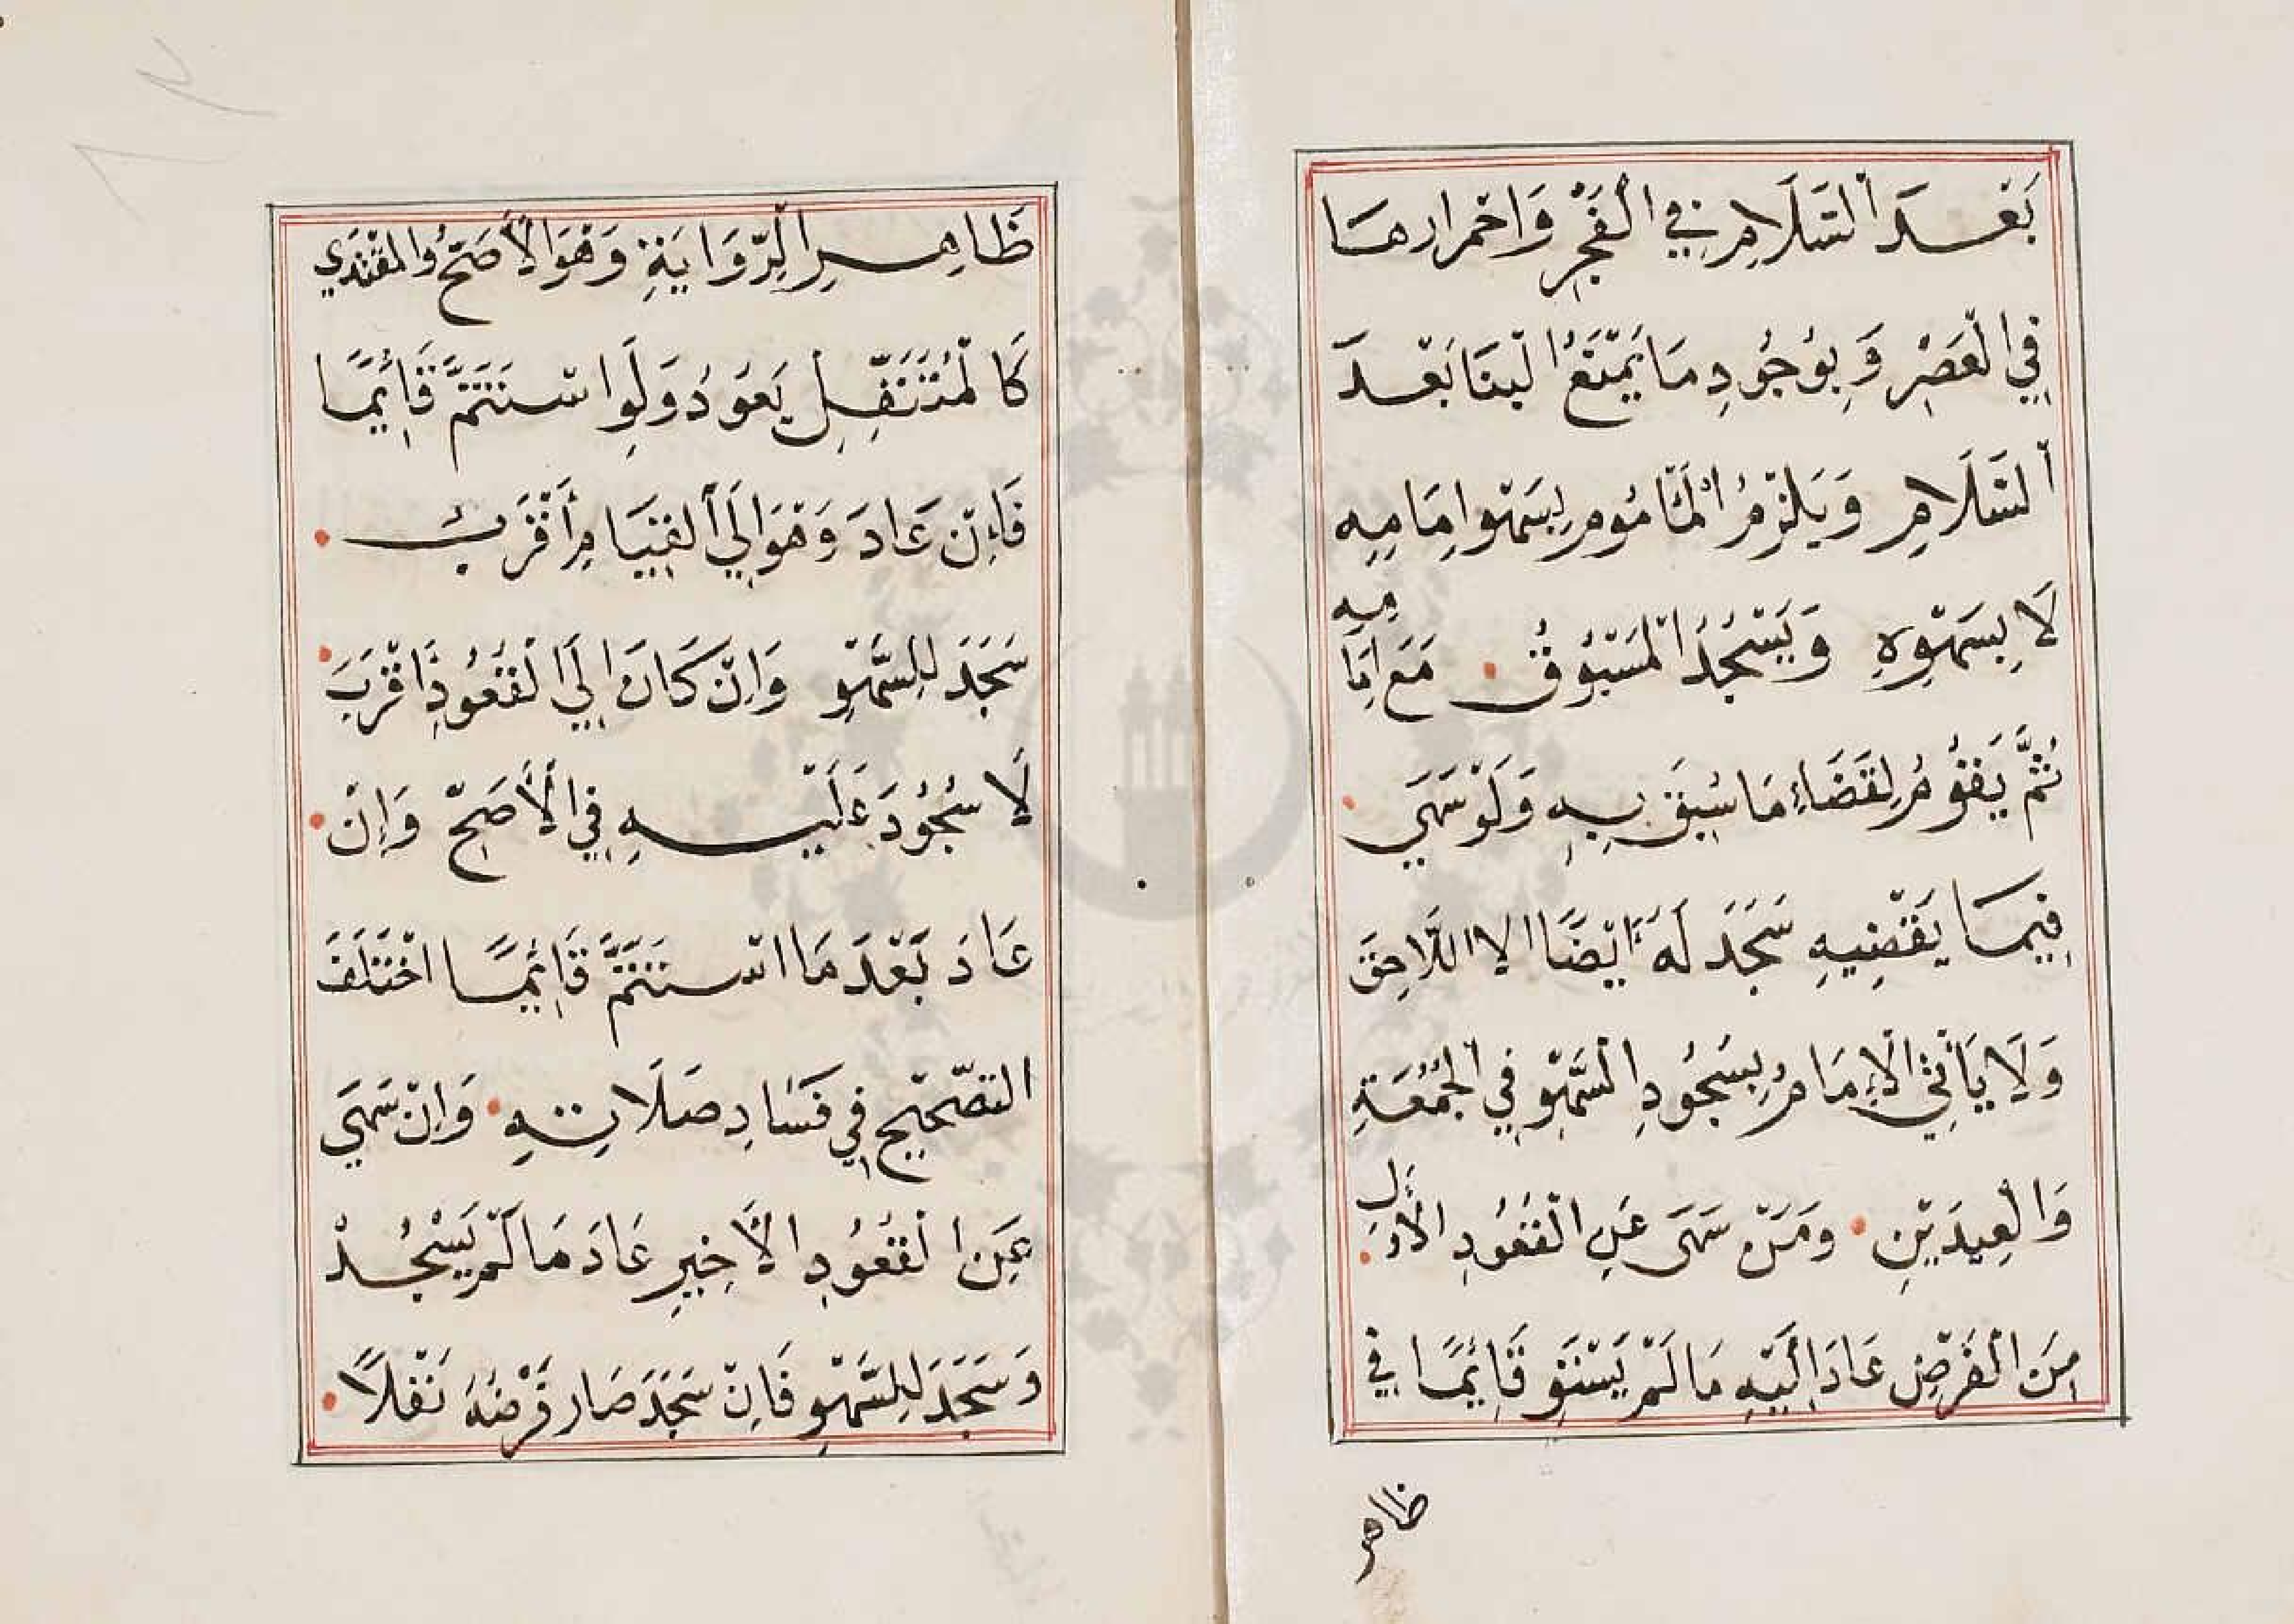 بَعْدَ السَّلَامِ فِي الْفَجْرِ وَاحْمِرَارِهَا
فِي الْعَصْرِ وَبِوُجُودِ مَا يَمْنَعُ الْبِنَا بَعْدَ
السَّلَامِ وَيَلْزَمُ الْمَأْمُومِ بِسَهْوِ اِمَامِهِ
لَا بِسَهْوِهِ وَيَسْجُدُ الْمَسْبُوقُ مَعَ اِمَامِهِ
ثُمَّ يَقُومُ لِقَضَاءِ مَا سُبِقَ بِهِ وَلَوْ سَهَي
فِيمَا يَقْضِيهِ سَجَدَ لَهُ اَيْضًا لا اللَّاحِقَ
وَلَا يَأْتِي الْاِمَامُ بِسُجُودِ السَّهْوِ فِي الْجُمُعَةِ
وَالْعِيدَيْنِ وَمَنْ سَهَى عَنِ الْقُعُودِ الْأَوَّلِ
مِنَ الْفَرْضِ عَادَ اِلَيْهِ مَا لَمْ يَسْتَوِ قَائِمًا فِي
ظاهر
ظَاهِرِ الرِّوَايَةِ وَهُوَ الْأَصَحُّ وَالْمُقْتَدِي
كَالْمُتَنَفِّلِ يَعُودُ وَلَوِ اسْتَتَمَّ قَائِمًا
فَاِنْ عَادَ وَهُوَ اِلَي الْقِيَامِ أَقْرَبُ
سَجَدَ لِلسَّهْوِ وَاِنْ كَانَ اِلَي الْقُعُودِ اَقْرَبَ
لَا سُجُودَ عَلَيْهِ فِي الْأَصَحِّ وَاِنْ
عَادَ بَعْدَ مَا اسْتَتَمَّ قَائِمًا اخْتَلَفَ
التَّصْحِيحِ فِي فَسَادِ صَلَاتِهِ وَاِنْ سَهَي
عَنِ الْقُعُودِ الْأَخِيرِ عَادَ مَا لَمْ يَسْجُدْ
وَسَجَدَ لِلسَّهْوِ فَاِنْ سَجَدَ صَارَ فَرْضُهُ نَفْلًا